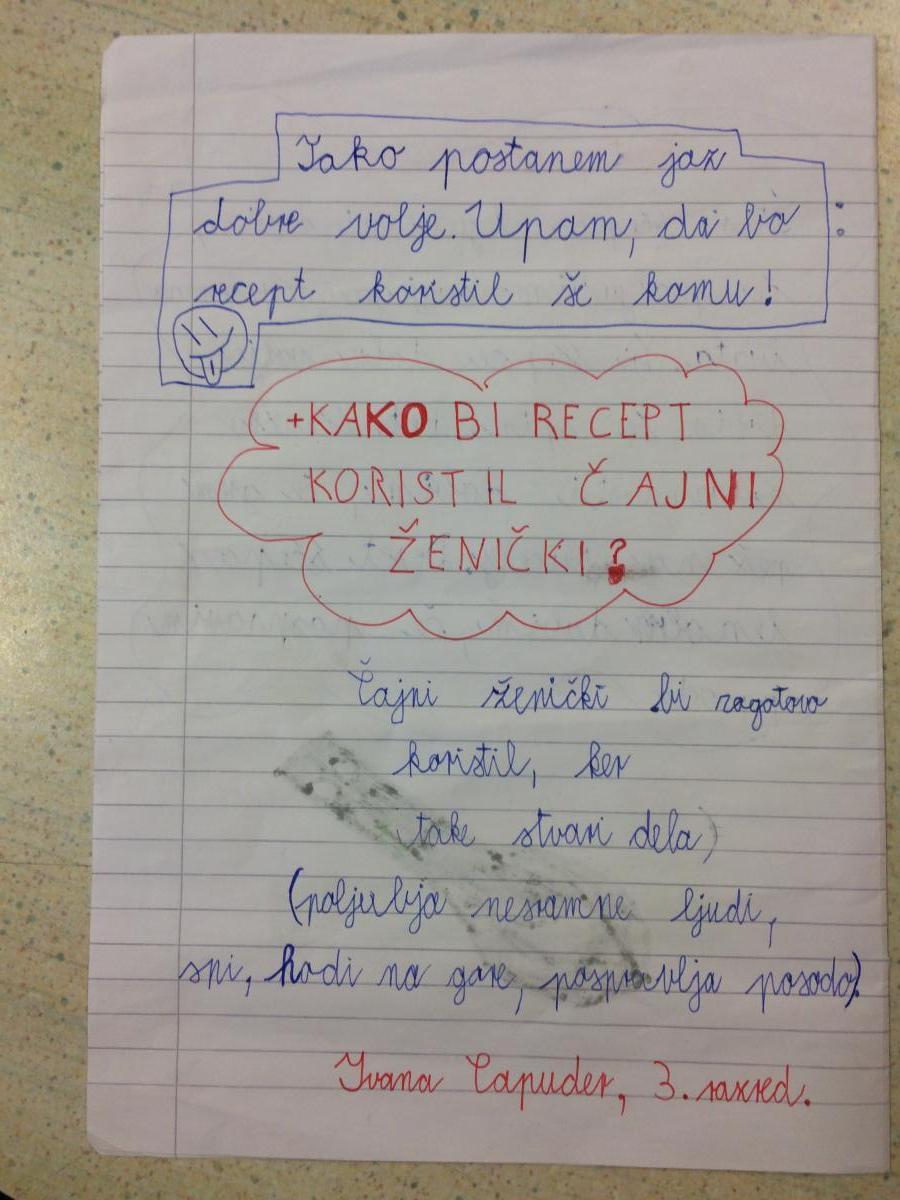 Tako postanem jaz
dobre volje. Upam, da bo :
recept koristil še komu!
+KAKO BI RECEPT
KORISTIL ČAJNI
ŽENIČKI?
Čajni ženički bi zagotovo
koristil, ker
take stvari dela)
(poljublja nesramne ljudi,
spi, hodi na gore, pospravlja posodo).
Ivana Capuder, 3. razred.